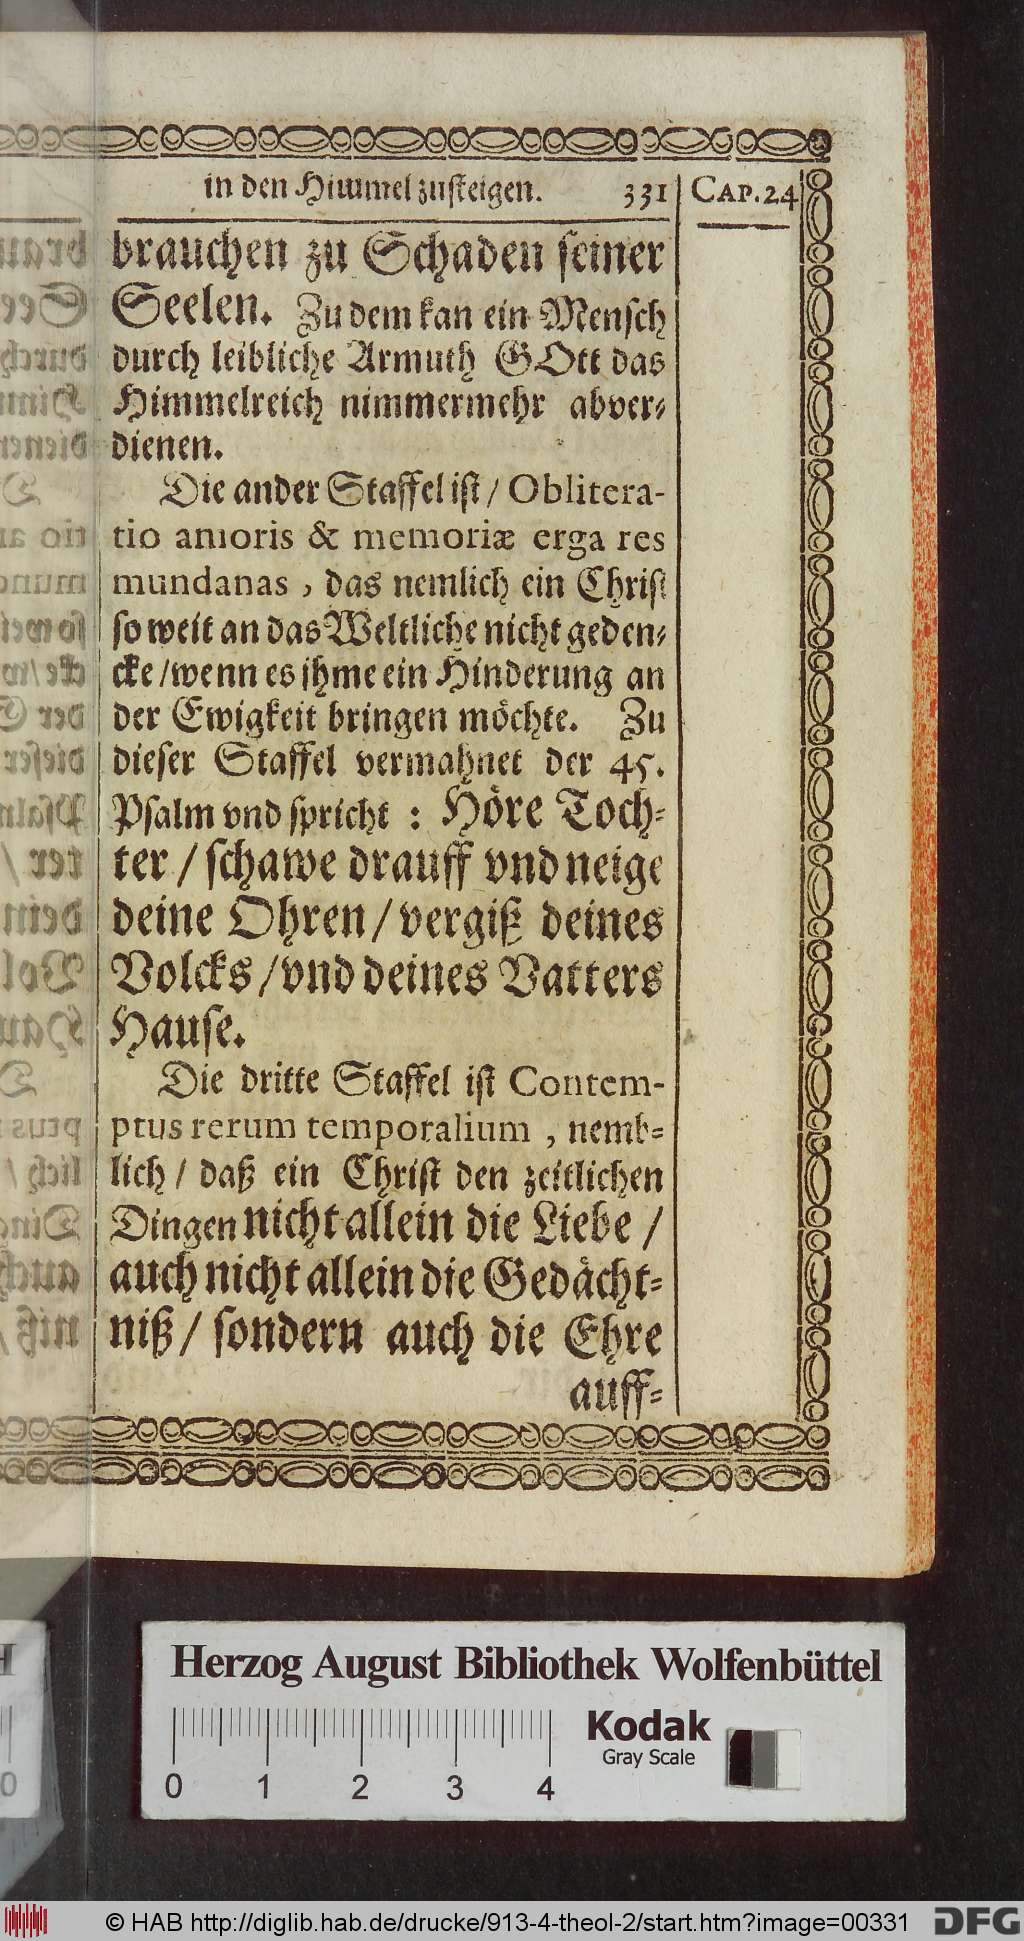 in den Himmel zusteigen. 331 CAP. 24
brauchen zu Schaden seiner
Seelen. Zu dem kan ein Mensch
durch leibliche Armuth GOtt das
Himmelreich nimmermehr abver-
dienen.
Die ander Staffel ist / Oblitera-
tio amoris & memoriæ erga res
mundanas, das nemlich ein Christ
so weit an das Weltliche nicht geden-
cke / wenn es ihme ein Hinderung an
der Ewigkeit bringen möchte. Zu
dieser Staffel vermahnet der 45.
Psalm vnd spricht : Höre Toch-
ter / schawe drauff vnd neige
deine Ohren / vergiß deines
Volcks / vnd deines Vatters
Hause.
Die dritte Staffel ist Contem-
ptus rerum temporalium, nemb-
lich / daß ein Christ den zeitlichen
Dingen nicht allein die Liebe /
auch nicht allein die Gedächt-
niß / sondern auch die Ehre
auff-
Herzog August Bibliothek Wolfenbüttel
Kodak
Gray Scale
0 1 2 3 4
© HAB http://diglib.hab.de/drucke/913-4-theol-2/start.htm?image=00331
DFG